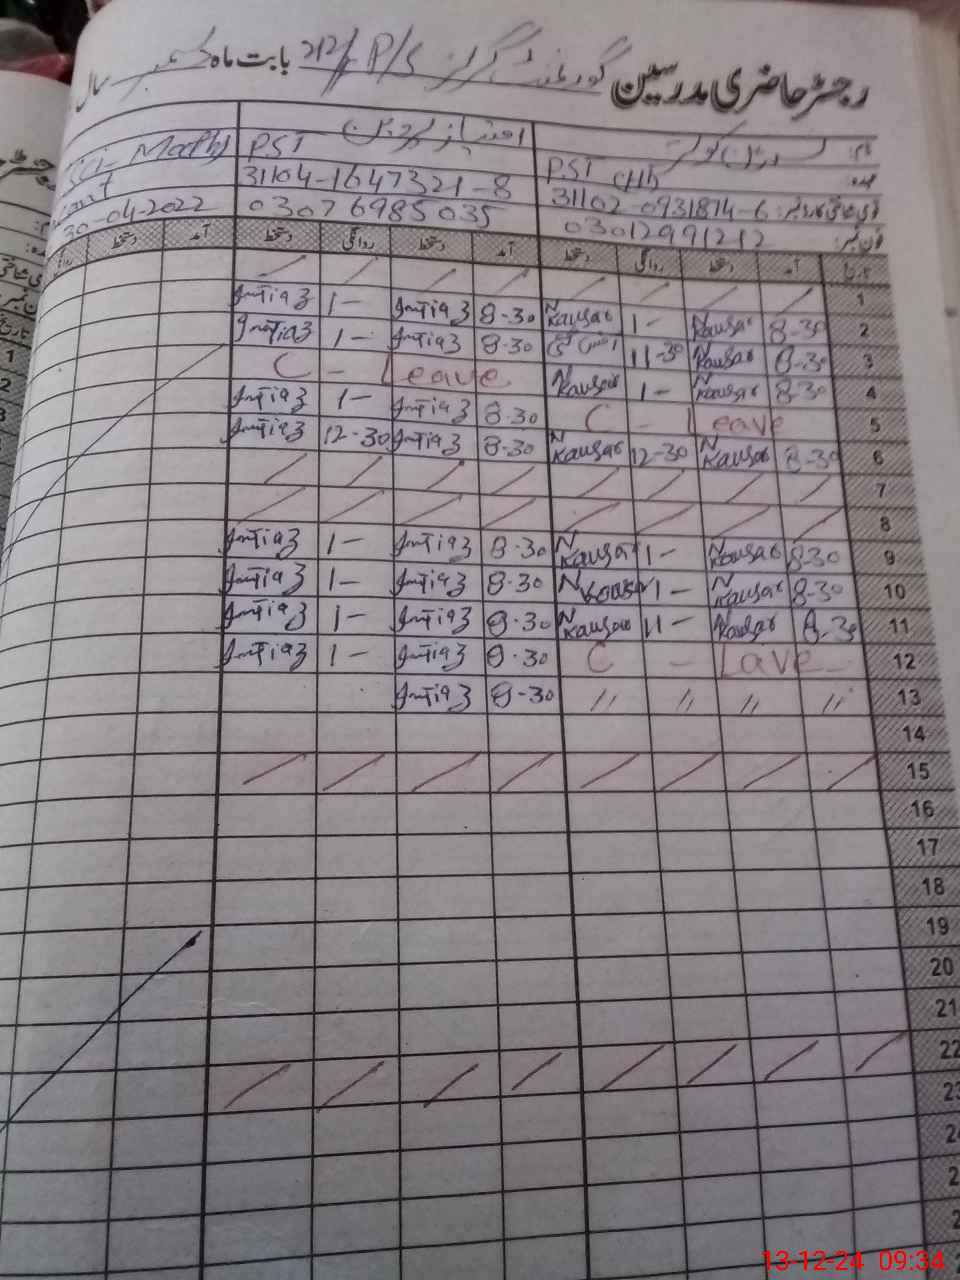 رجسٹر حاضری مدرسین گورنمنٹ گرلز P/S 212/ بابت ماہ دسمبر سال
نام:
عہدہ: PST PST Sci-Math
قومی شناختی کارڈ نمبر: 31102-0931814-6 31104-1647321-8
فون نمبر: 03012991212 03076985035 30-04-2022
تاریخ آمد دستخط روانگی دستخط آمد دستخط روانگی دستخط آمد دستخط
1
2 8-30 N Kausar 1- N Kausar 8-30 Imtiaz 1- Imtiaz
3 8-30 N Kausar 11-30 8-30 Imtiaz 1- Imtiaz
4 8-30 N Kausar 1- N Kausar C - Leave
5 C - Leave 8-30 Imtiaz 1- Imtiaz
6 8-30 N Kausar 12-30 N Kausar 8-30 Imtiaz 12-30 Imtiaz
7
8
9 8-30 N Kausar 1- N Kausar 8-30 Imtiaz 1- Imtiaz
10 8-30 N Kausar 1- N Kausar 8-30 Imtiaz 1- Imtiaz
11 8-30 N Kausar 11- N Kausar 8-30 Imtiaz 1- Imtiaz
12 C - Lave 8-30 Imtiaz 1- Imtiaz
13 〃 〃 〃 〃 8-30 Imtiaz
14
15
16
17
18
19
20
21
22
23
24
13-12-24 09:34